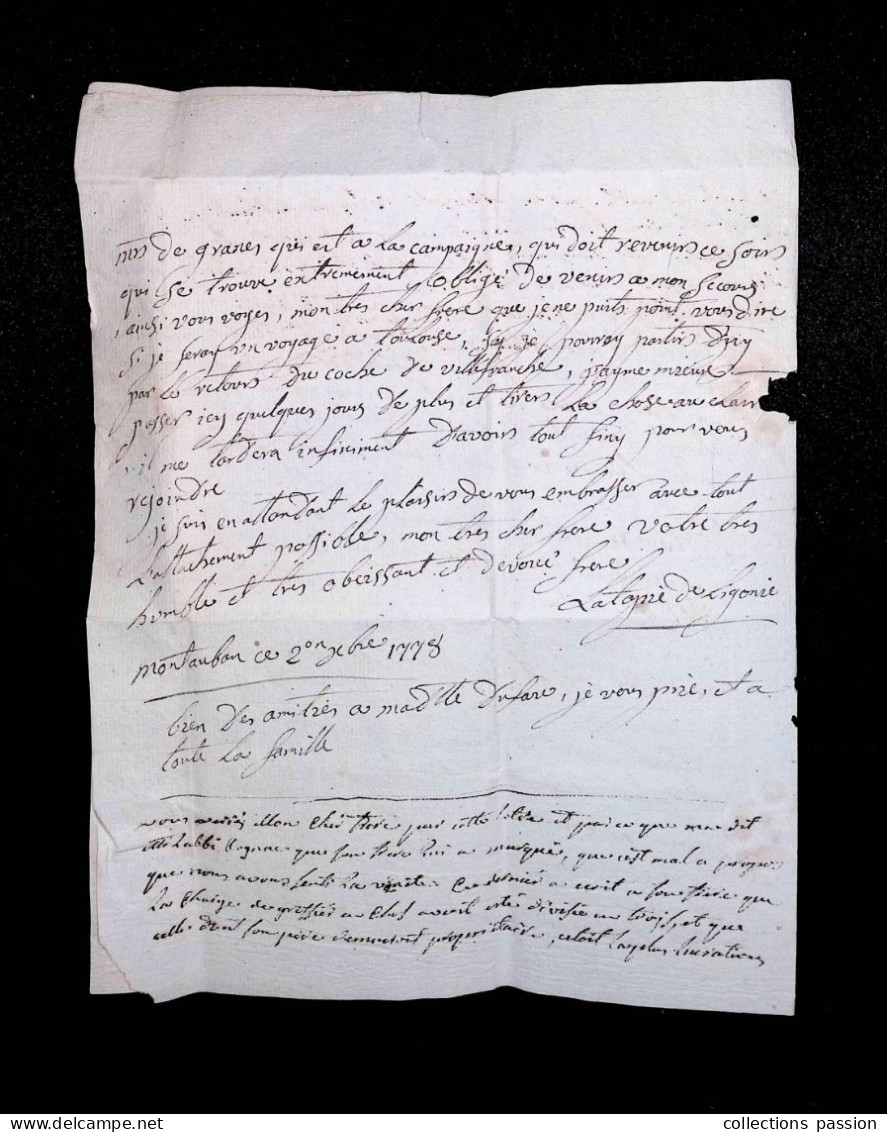 de granes qui est a la campaigne, qui doit revenirs ce soirs
qui se trouve extremement oblige de venirs a mon secours
ainsi vous voyes, mon tres cher frere que je ne puits point vous dire
si je feray un voyage a toulouse, je pourray partirs d'icy
par le retours du coche de villefranche, j'ayme mieux
passer icy quelques jours de plus et tirers la chose au clair
il me tardera infiniment d'avoirs tout finy pour vous
rejoindre
je suis en attendant le plaisirs de vous embrasser avec tout
l'attachement possible, mon tres cher frere votre tres
humble et tres obeissant et devoué frere
Latapie de Ligonie
montauban ce 2on xbre 1778
bien des amitiés a madlle Dufare, je vous prie, et a
toute la famille
vous mon cher frere par cette lettre et parce que ma dit
Labbé que son frere lui a marqué, que c'est mal a propos
que nous avons la Ce dernier a écrit a son frere que
La charge de greffier en chef avoit été divisée en trois et que
celle dont son pere demeuroit proprietaire, etoit la plus lucrative
collections passion